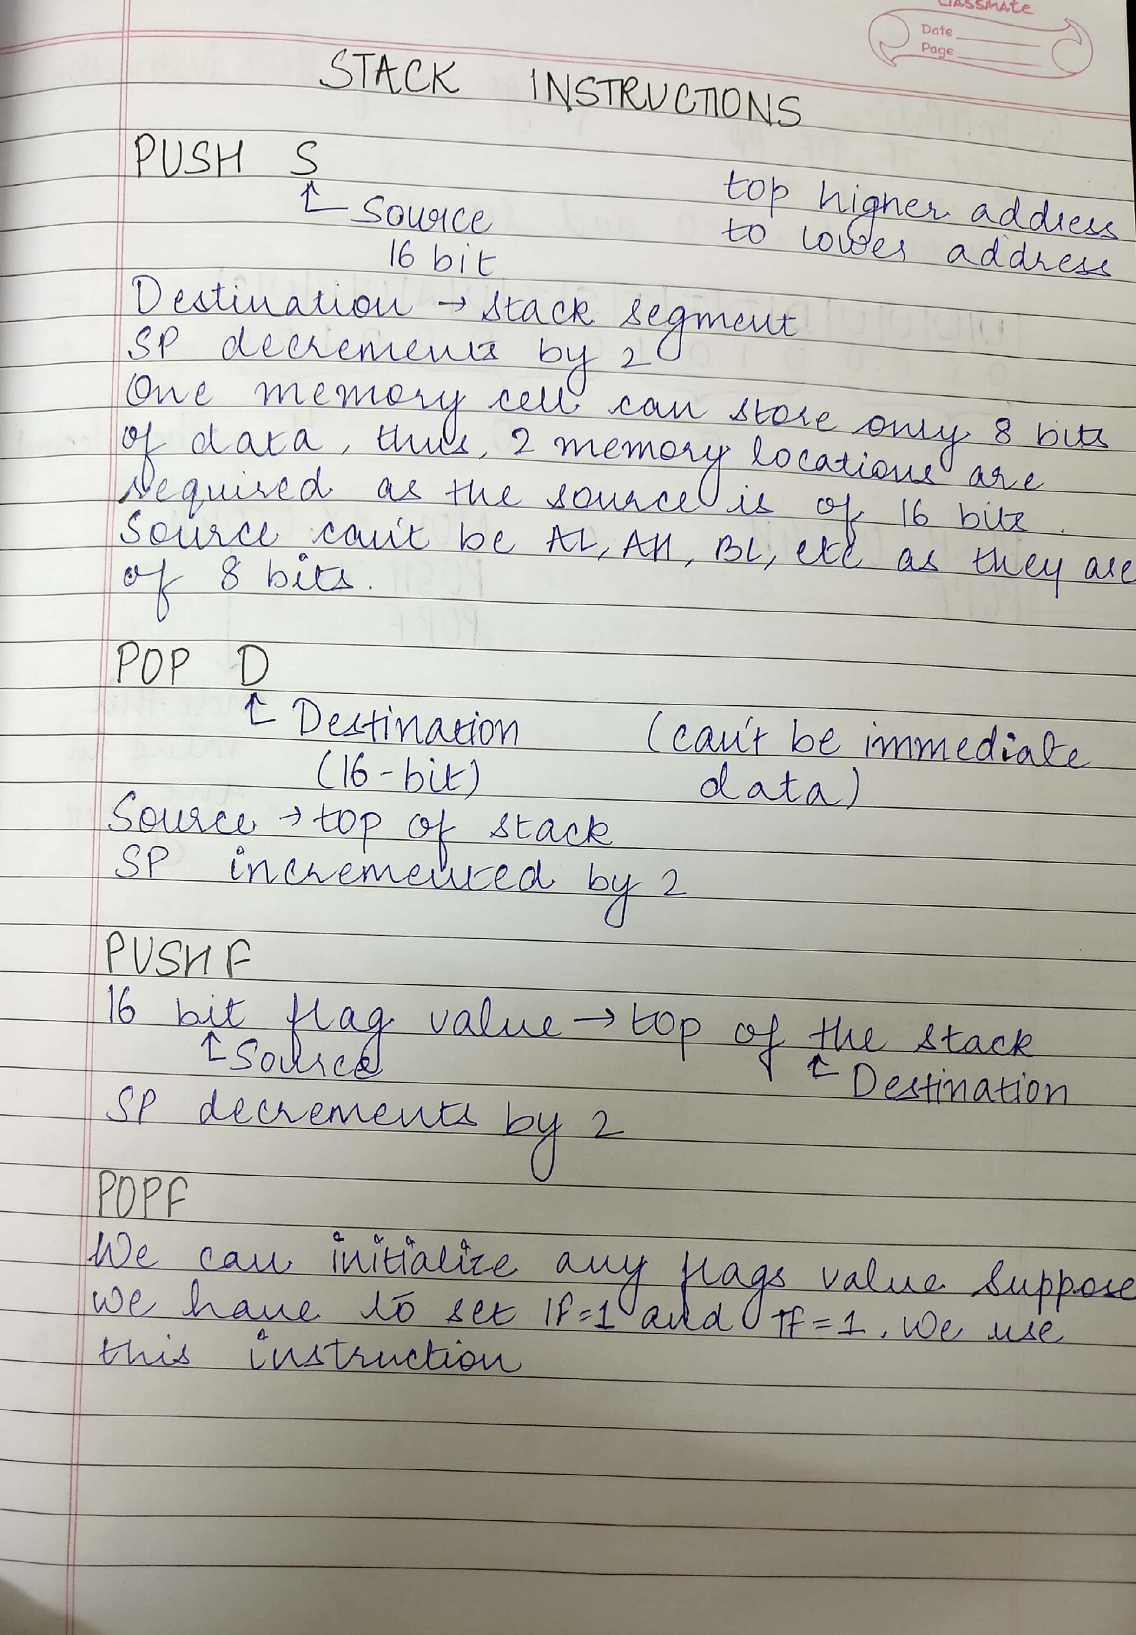 classmate
Date
Page
STACK INSTRUCTIONS
PUSH S
Source
16 bit
top higher address
to lower address
Destination → stack segment
SP decrements by 2
One memory cell can store only 8 bits
of data, thus, 2 memory locations are
required as the source is of 16 bits.
Source can't be AL, AH, BL, etc as they are
of 8 bits.
POP D
Destination
(16-bit)
(can't be immediate
data)
Source → top of stack
SP incremented by 2
PUSHF
16 bit flag value → top of the stack
Source
Destination
SP decrements by 2
POPF
We can initialize any flags value suppose
we have to set IF=1 and TF=1, we use
this instruction